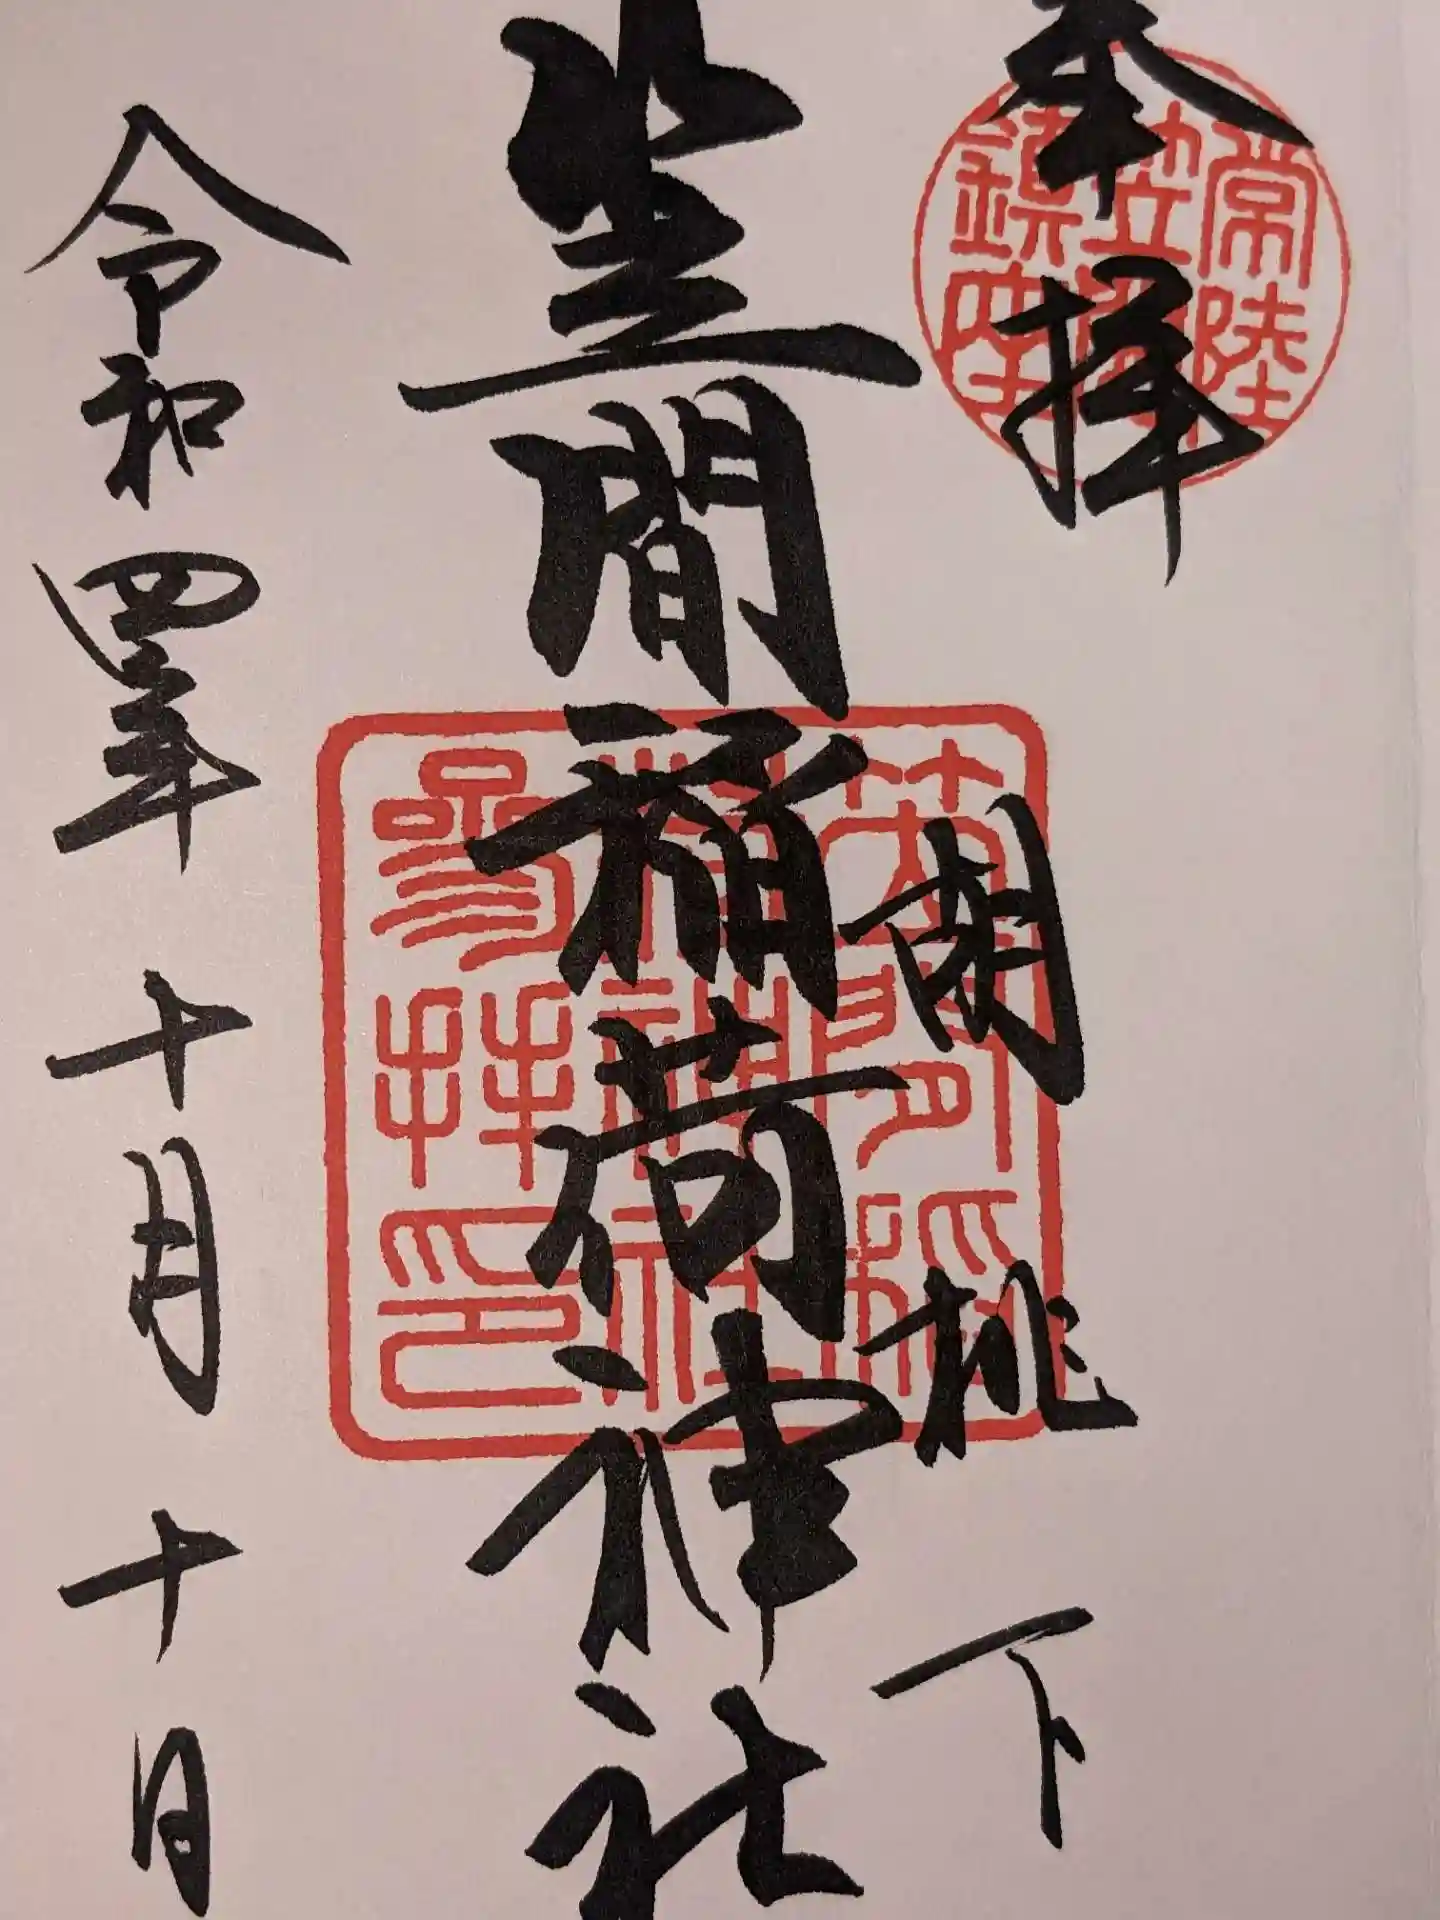 奉拝
常陸
笠間
鎮座
胡桃下
笠間稲荷神社
笠間稲
荷神社
参拝印
令和四年十月十日